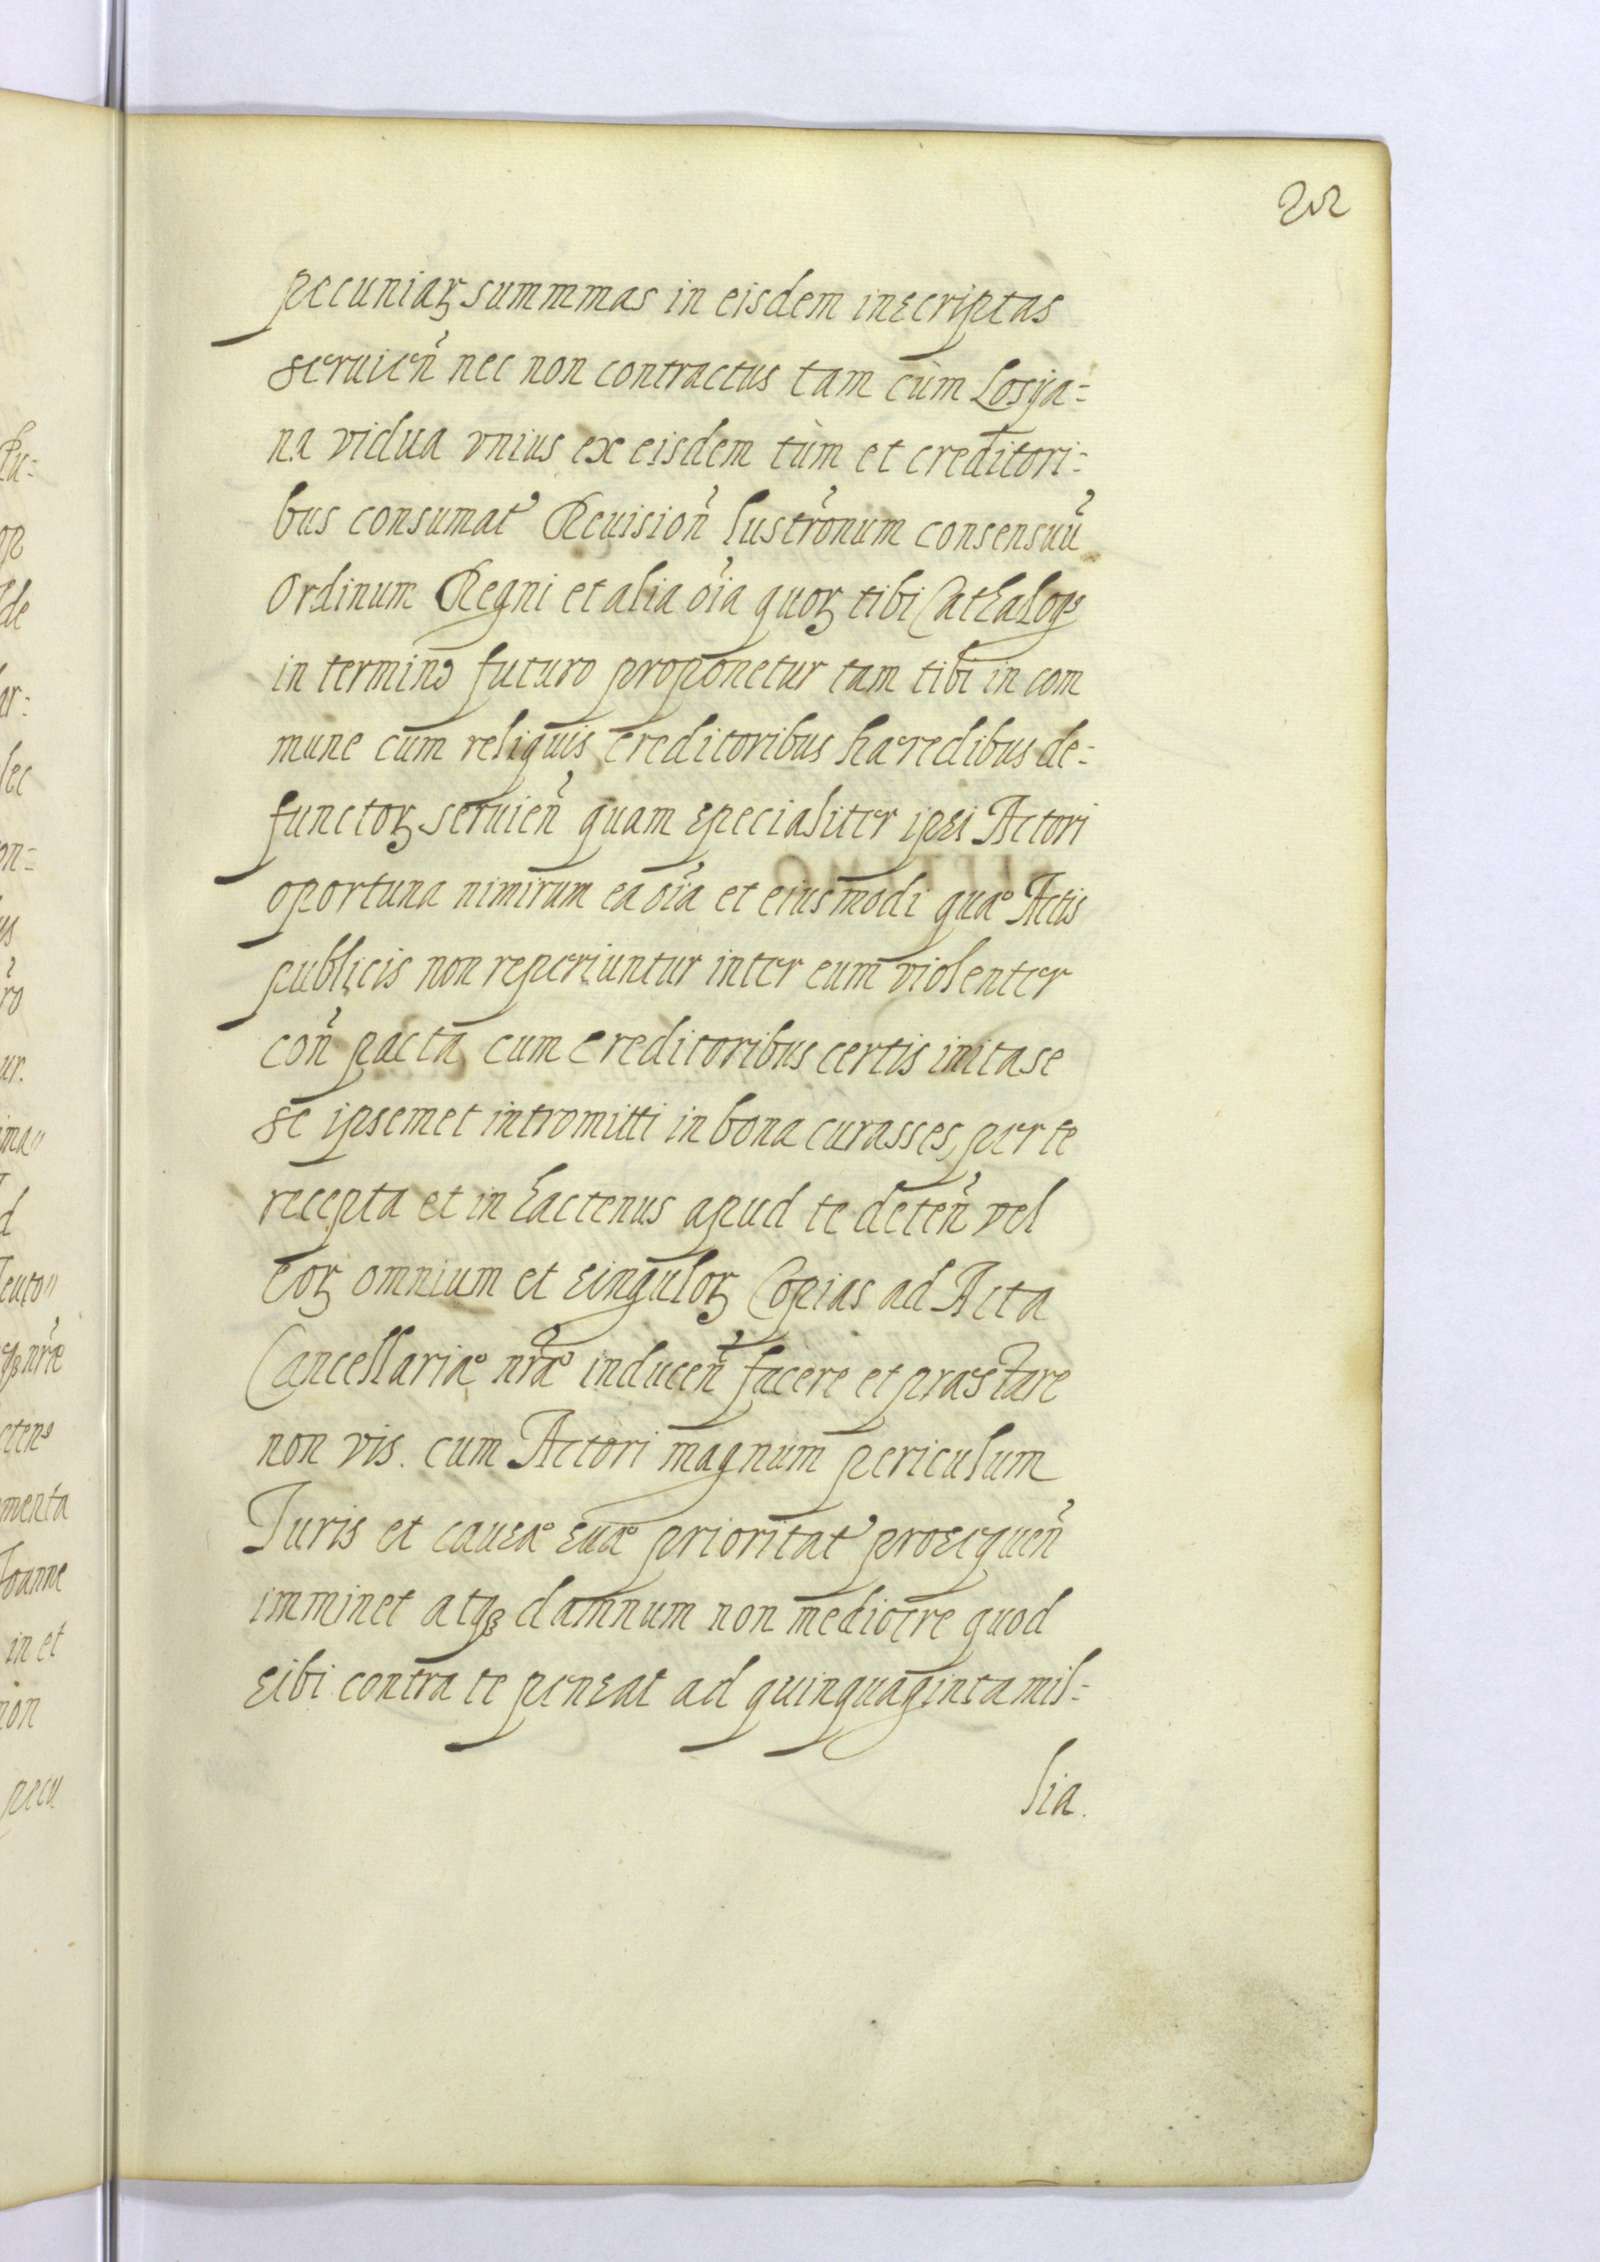 22
pecuniaꝝ summmas in eisdem inscriptas
seruień nec non contractus tam cùm Losÿa=
na vidua vnius ex eisdem tùm et creditori=
bus consumat' Reuisioń lustrõnum consensuũ
Ordinum Regni et alia oĩa quoꝝ tibi Cathalogꝰ
in termino futuro proponetur tam tibi in com
mune cum reliquis creditoribus haeredibus de=
functoꝝ seruień quam specialiter ipsi Actori
oportuna nimirum ea oĩa et eiusmodi quae Actis
publicis non reperiuntur inter eum violenter
coń pacta cum creditoribus certis inita se
se ipsemet intromitti in bona curasses, per te
recepta et in hactenus apud te deteń vel
eoꝝ omnium et singuloꝝ Copias ad Acta
Cancellariae nr̃ae induceń facere et praestare
non vis. cum Actori magnum periculum
Juris et causae suae prioritat' prosequeń
imminet atqꝫ damnum non mediocre quod
sibi contra te pensat ad quinquaginta mil=
lia.